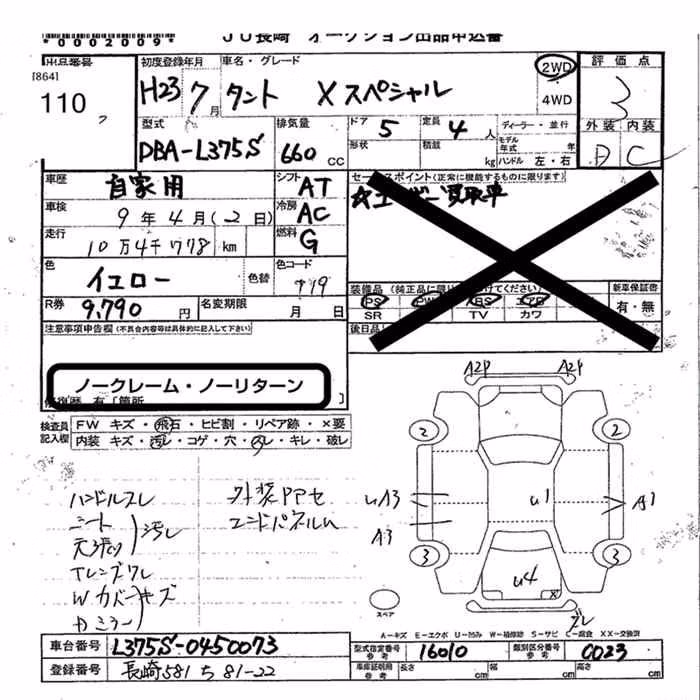 *0002009* JU長崎 オークション出品申込書
出品番号 初度登録年月 車名・グレード 2WD 評価点
[864] H23 7月 タント Xスペシャル 4WD 3
110 外装 内装
型式 排気量 ドア 5 定員 4人 ディーラー・並行 D C
DBA-L375S 660cc 形状 積載 kg モデル年式 年 ハンドル 左・右
車歴 自家用 シフト AT セールスポイント(正常に機能するものに限ります)
車検 9年4月(2日) 冷房 AC
走行 10万4千778km 燃料 G
色 イエロー 色替 色コード
装備品(純正品に限り けてください) 新車保証書
R券 9,790円 名変期限 月 日 PS PW ABS エアB 有・無
SR TV カワ
注意事項申告欄(不具合内容等は具体的に記入して下さい) 後日品
ノークレーム・ノーリターン
修復歴 有〔箇所 〕
検査員記入欄 FW キズ・飛石・ヒビ割・リペア跡・×要
内装 キズ・汚レ・コゲ・穴・スレ・キレ・破レ
A2P A2P
2 2
ハンドルスレ 外装PPセ
シート エンドパネルU
天張り 汚レ
uA3 u1 A1
A3
Tレンズワレ
3 3
Wカバーキズ
u4 X
カミラー
スペア ズレ
A-キズ E-エクボ U-凹み W-補修跡 S-サビ C-腐食 XX-交換済
車台番号 L375S-0450073 型式指定番号 参考 16010 類別区分番号 参考 0023
登録番号 長崎581 ち 81-22 車庫証明用 参考 長さ cm 幅 cm 高さ cm